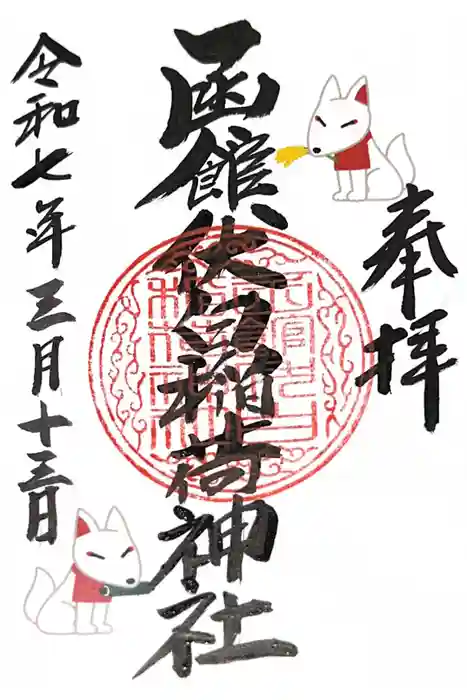 奉拝
函館伏見稲荷神社
令和七年三月十三日